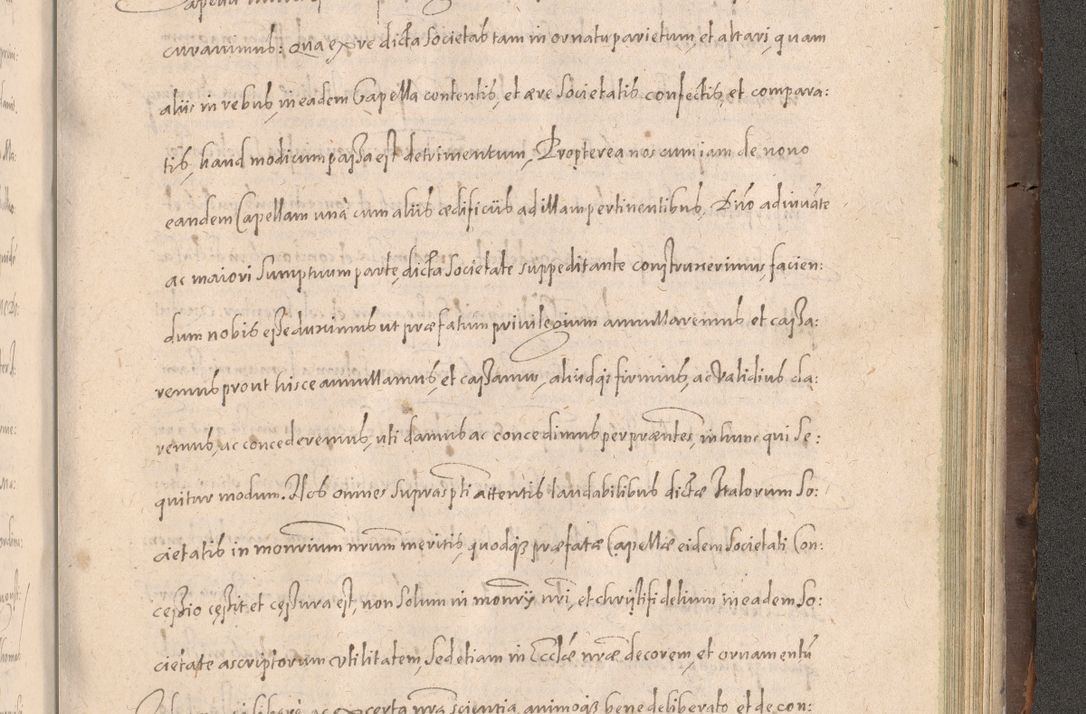 curavimus: Qua ex re dicta Societas tam in ornatu parietum, et altari, quam
aliis in rebus, in eadem Capella contentis, et aere Societatis confectis, et compara:
tis, haud modicum passa est detrimentum, Propterea nos cum iam de novo
eandem Capellam unà cum aliis aedificiis ad illam pertinentibus, Dno adiuvāte
ac maiori Sumptuum parte, dicta Societate suppeditante construxerimus, facien:
dum nobis esse duximus ut praefatum privilegium annullaremus et cassa:
remus prout hisce annullamus, et cassamus, aliudqz firmius, ac validius da:
remus, ac concederemus, uti damus ac concedimus per praentes, in hunc qui Se:
quitur modum. Nos omnes Suprascpti attentis laudabilibus dictae Italorum So:
cietatis in monrium nrum meritis, quodqz praefatae Capellae eidem Societati Con:
cessio cessit et cessura est, non Solum in monrij nri, et christifidelium in eadem So:
cietate ascriptorum utilitatem, Sed etiam in Ecclae nrae decorem, et ornamentū
ac ex certa nra scientia, animoqz bene deliberato et de con: